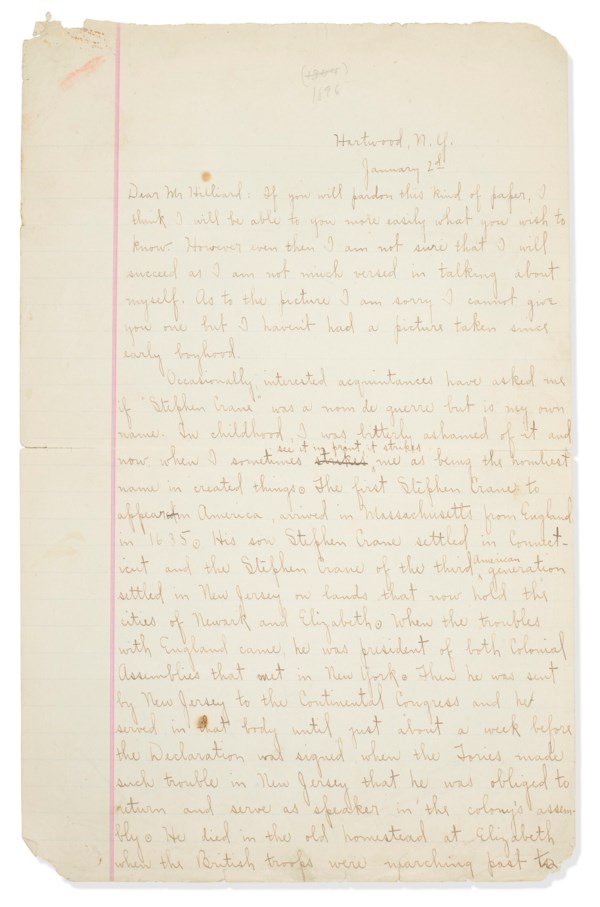 1896
Hartwood, N.Y.
January 2d
Dear Mr Hilliard: If you will pardon this kind of paper, I
think I will be able to you more easily what you wish to
know. However even then I am not sure that I will
succeed as I am not much versed in talking about
myself. As to the picture I am sorry I cannot give
you one but I haven't had a picture taken since
early boyhood.
Occasionally, interested acquintances have asked me
if "Stephen Crane" was a nom de guerre but is my own
name. In childhood, I was bitterly ashamed of it and
see it in print, it strikes
now, when I sometimes me as being the homliest
name in created things. The first Stephen Crane to
appear in America, arrived in Massachusetts from England
in 1635. His son Stephen Crane settled in Connect-
icut and the Stephen Crane of the third generation
American
settled in New Jersey on lands that now hold the
cities of Newark and Elizabeth. When the troubles
with England came, he was president of both Colonial
Assemblies that met in New York. Then he was sent
by New Jersey to the Continental Congress and he
served in that body until just about a week before
the Declaration was signed when the Tories made
such trouble in New Jersey that he was obliged to
return and serve as speaker in the colony's assem-
bly. He died in the old homestead at Elizabeth
when the British troops were marching past to